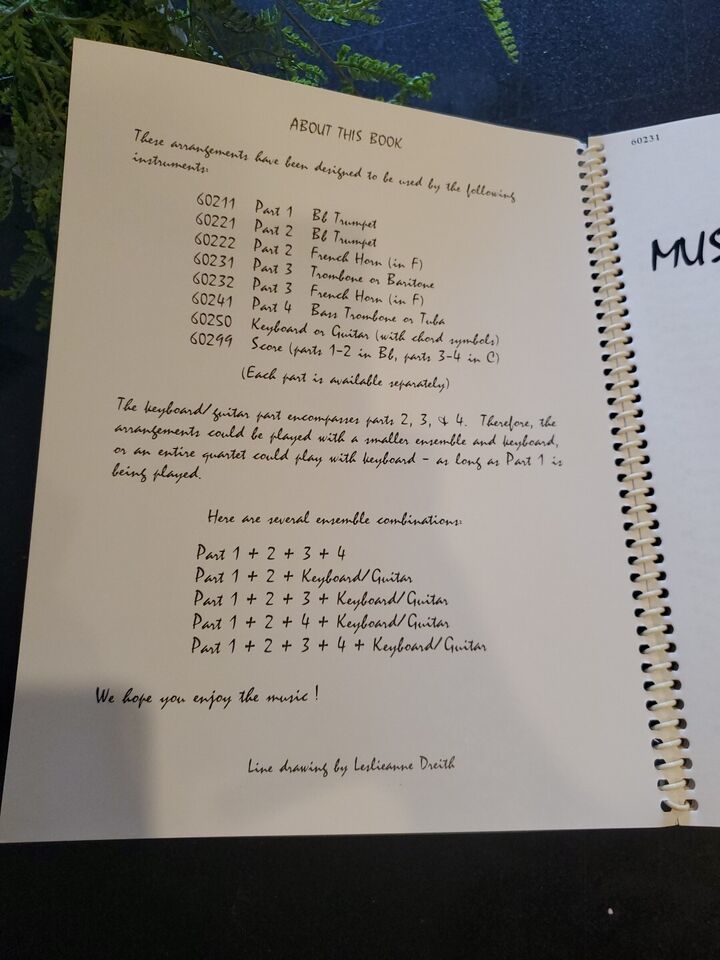 ABOUT THIS BOOK
These arrangements have been designed to be used by the following
instruments:
60211 Part 1 Bb Trumpet
60221 Part 2 Bb Trumpet
60222 Part 2 French Horn (in F)
60231 Part 3 Trombone or Baritone
60232 Part 3 French Horn (in F)
60241 Part 4 Bass Trombone or Tuba
60250 Keyboard or Guitar (with chord symbols)
60299 Score (parts 1-2 in Bb, parts 3-4 in C)
(Each part is available separately)
The keyboard/guitar part encompasses parts 2, 3, & 4. Therefore, the
arrangements could be played with a smaller ensemble and keyboard,
or an entire quartet could play with keyboard - as long as Part 1 is
being played.
Here are several ensemble combinations:
Part 1 + 2 + 3 + 4
Part 1 + 2 + Keyboard/Guitar
Part 1 + 2 + 3 + Keyboard/Guitar
Part 1 + 2 + 4 + Keyboard/Guitar
Part 1 + 2 + 3 + 4 + Keyboard/Guitar
We hope you enjoy the music!
Line drawing by Leslieanne Dreith
60231
MUS